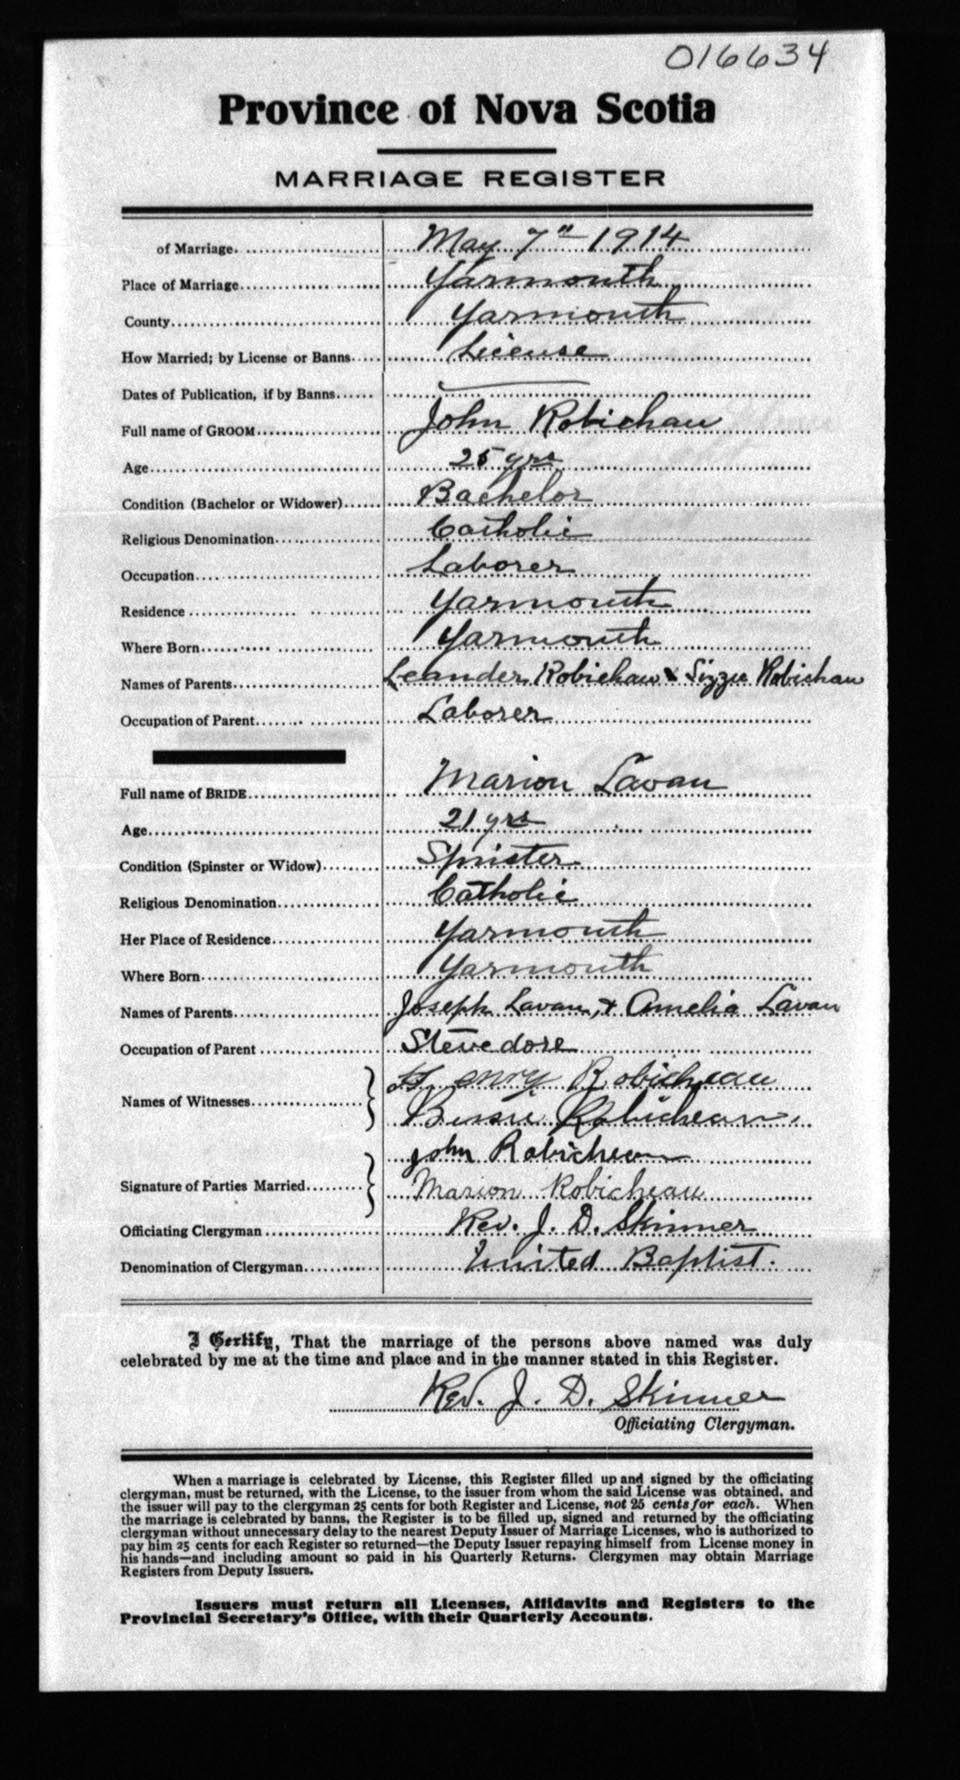 016634
Province of Nova Scotia
MARRIAGE REGISTER
of Marriage. May 7th 1914
Place of Marriage. Yarmouth
County. Yarmouth
How Married; by License or Banns. License
Dates of Publication, if by Banns.
Full name of GROOM. John Robichau
Age. 25 yrs
Condition (Bachelor or Widower). Bachelor
Religious Denomination. Catholic
Occupation. Laborer
Residence Yarmouth
Where Born. Yarmouth
Names of Parents. Leander Robichau & Lizzie Robichau
Occupation of Parent. Laborer
Full name of BRIDE. Marion Lavau
Age. 21 yrs
Condition (Spinster or Widow). Spinster
Religious Denomination. Catholic
Her Place of Residence. Yarmouth
Where Born. Yarmouth
Names of Parents. Joseph Lavau, & Amelia Lavau
Occupation of Parent Stevedore
Names of Witnesses. Henry Robicheau
Bessie Robicheau.
Signature of Parties Married. John Robicheau
Marion Robicheau
Officiating Clergyman Rev. J. D. Skinner
Denomination of Clergyman. United Baptist.
I Certify, That the marriage of the persons above named was duly
celebrated by me at the time and place and in the manner stated in this Register.
Rev. J. D. Skinner
Officiating Clergyman.
When a marriage is celebrated by License, this Register filled up and signed by the officiating
clergyman, must be returned, with the License, to the issuer from whom the said License was obtained, and
the issuer will pay to the clergyman 25 cents for both Register and License, not 25 cents for each. When
the marriage is celebrated by banns, the Register is to be filled up, signed and returned by the officiating
clergyman without unnecessary delay to the nearest Deputy Issuer of Marriage Licenses, who is authorized to
pay him 25 cents for each Register so returned—the Deputy Issuer repaying himself from License money in
his hands—and including amount so paid in his Quarterly Returns. Clergymen may obtain Marriage
Registers from Deputy Issuers.
Issuers must return all Licenses, Affidavits and Registers to the
Provincial Secretary's Office, with their Quarterly Accounts.